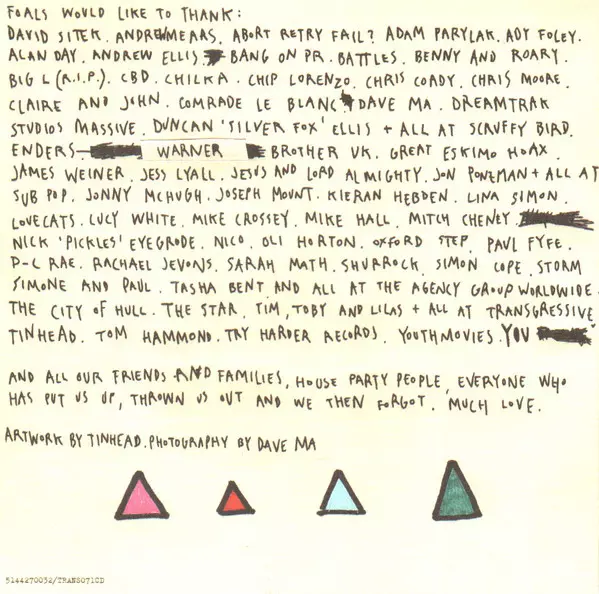 FOALS WOULD LIKE TO THANK:
DAVID SITEK. ANDREW MEARS. ABORT RETRY FAIL? ADAM PARYLAK. ADY FOLEY.
ALAN DAY. ANDREW ELLIS. BANG ON PR. BATTLES. BENNY AND ROARY.
BIG L (R.I.P). CBD. CHILKA. CHIP LORENZO. CHRIS COADY. CHRIS MOORE.
CLAIRE AND JOHN. COMRADE LE BLANC DAVE MA. DREAMTRAK
STUDIOS MASSIVE. DUNCAN 'SILVER FOX' ELLIS + ALL AT SCRUFFY BIRD.
ENDERS WARNER BROTHER UK. GREAT ESKIMO HOAX.
JAMES WEINER. JESS LYALL. JESUS AND LORD ALMIGHTY. JON PONEMAN + ALL AT
SUB POP. JONNY MCHUGH. JOSEPH MOUNT. KIERAN HEBDEN. LINA SIMON.
LOVECATS. LUCY WHITE. MIKE CROSSEY. MIKE HALL. MITCH CHENEY.
NICK 'PICKLES' EYEGRODE. NICO. OLI HORTON. OXFORD STEP. PAUL FYFE.
P-C RAE. RACHAEL JEVONS. SARAH MATH. SHURROCK. SIMON COPE. STORM
SIMONE AND PAUL. TASHA BENT AND ALL AT THE AGENCY GROUP WORLDWIDE.
THE CITY OF HULL. THE STAR. TIM, TOBY AND LILAS + ALL AT TRANSGRESSIVE.
TINHEAD. TOM HAMMOND. TRY HARDER RECORDS. YOUTHMOVIES. YOU
AND ALL OUR FRIENDS AND FAMILIES, HOUSE PARTY PEOPLE, EVERYONE WHO
HAS PUT US UP, THROWN US OUT AND WE THEN FORGOT. MUCH LOVE.
ARTWORK BY TINHEAD. PHOTOGRAPHY BY DAVE MA
5144270032/TRANS071CD